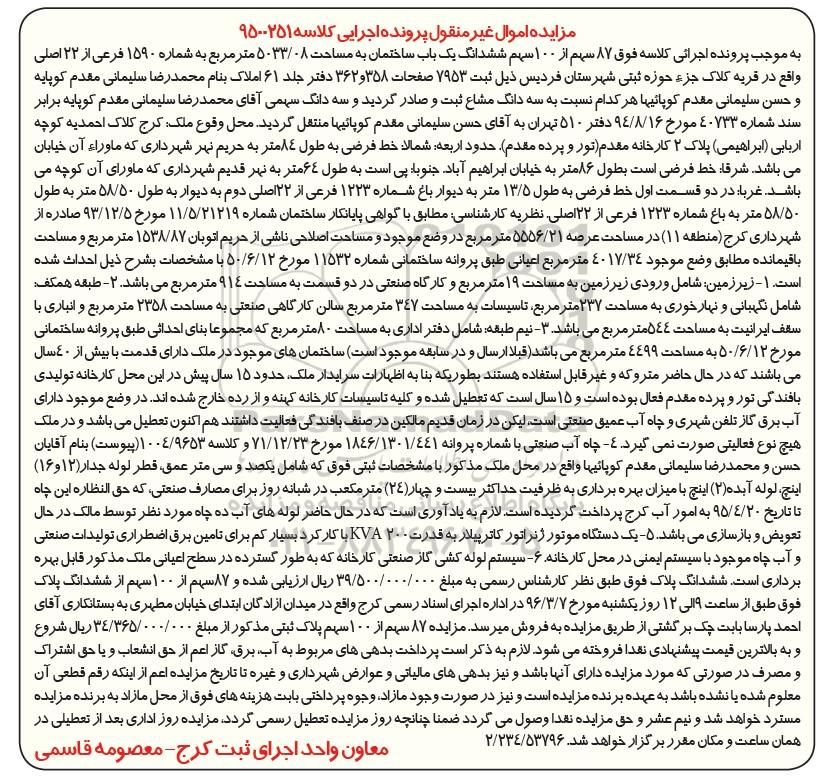 مزایده اموال غیر منقول پرونده اجرایی کلاسه ۹۵۰۰۲۵۱
به موجب پرونده اجرائی کلاسه فوق ۸۷ سهم از ۱۰۰سهم ششدانگ یک باب ساختمان به مساحت ۵۰۳۳/۰۸ مترمربع به شماره ۱۵۹۰ فرعی از ۲۲ اصلی
واقع در قریه کلاک جزء حوزه ثبتی شهرستان فردیس ذیل ثبت ۷۹۵۳ صفحات ۳۵۸و۳۶۲ دفتر جلد ۶۱ املاک بنام محمدرضا سلیمانی مقدم کوپایه
و حسن سلیمانی مقدم کوپائیها هر کدام نسبت به سه دانگ مشاع ثبت و صادر گردید و سه دانگ سهمی آقای محمدرضا سلیمانی مقدم کوپایه برابر
سند شماره ۴۰۷۳۳ مورخ ۹۴/۸/۱۶ دفتر ۵۱۰ تهران به آقای حسن سلیمانی مقدم کوپائیها منتقل گردید. محل وقوع ملک: کرج کلاک احمدیه کوچه
اربابی (ابراهیمی) پلاک ۲ کارخانه مقدم(تور و پرده مقدم). حدود اربعه: شمالا: خط فرضی به طول ۸۴متر به حریم نهر شهرداری که ماوراء آن خیابان
می باشد. شرقا: خط فرضی است بطول ۸۶متر به خیابان ابراهیم آباد. جنوبا: پی است به طول ۶۴متر به نهر قدیم شهرداری که ماورای آن کوچه می
باشد. غربا: در دو قسمت اول خط فرضی به طول ۱۳/۵ متر به دیوار باغ شماره ۱۲۲۳ فرعی از ۲۲اصلی دوم به دیوار به طول ۵۸/۵۰ متر به طول
۵۸/۵۰ متر به باغ شماره ۱۲۲۳ فرعی از ۲۲اصلی. نظریه کارشناسی: مطابق با گواهی پایانکار ساختمان شماره ۱۱/۵/۲۱۲۱۹ مورخ ۹۳/۱۲/۵ صادره از
شهرداری کرج (منطقه ۱۱) در مساحت عرصه ۵۵۵۶/۲۱ مترمربع در وضع موجود و مساحت اصلاحی ناشی از حریم اتوبان ۱۵۳۸/۸۷ متر مربع و مساحت
باقیمانده مطابق وضع موجود ۴۰۱۷/۳۴ مترمربع اعیانی طبق پروانه ساختمانی شماره ۱۱۵۳۲ مورخ ۵۰/۶/۱۲ با مشخصات بشرح ذیل احداث شده
است. ۱- زیرزمین: شامل ورودی زیرزمین به مساحت ۱۹مترمربع و کارگاه صنعتی در دو قسمت به مساحت ۹۱۴ مترمربع می باشد. ۲- طبقه همکف:
شامل نگهبانی و نهارخوری به مساحت ۲۳۷مترمربع، تاسیسات به مساحت ۳۴۷ مترمربع سالن کارگاهی صنعتی به مساحت ۲۳۵۸ مترمربع و انباری با
سقف ایرانیت به مساحت ۵۴۴مترمربع می باشد. ۳- نیم طبقه: شامل دفتر اداری به مساحت ۸۰مترمربع که مجموعا بنای احداثی طبق پروانه ساختمانی
مورخ ۵۰/۶/۱۲ به مساحت ۴۴۹۹ مترمربع می باشد(قبلا ارسال و در سابقه موجود است) ساختمان های موجود در ملک دارای قدمت با بیش از ۴۰سال
می باشند که در حال حاضر متروکه و غیر قابل استفاده هستند بطوریکه بنا به اظهارات سرایدار ملک، حدود ۱۵ سال پیش در این محل کارخانه تولیدی
بافندگی تور و پرده مقدم فعال بوده است و ۱۵سال است که تعطیل شده و کلیه تاسیسات کارخانه کهنه و از رده خارج شده اند. در وضع موجود دارای
آب برق گاز تلفن شهری و چاه آب عمیق صنعتی است. لیکن در زمان قدیم مالکین در صنف بافندگی فعالیت داشتند هم اکنون تعطیل می باشد و در ملک
هیچ نوع فعالیتی صورت نمی گیرد. ۴- چاه آب صنعتی با شماره پروانه ۱۸۴۶/۱۳۰۱/۴۴۱ مورخ ۷۱/۱۲/۲۳ و کلاسه ۱۰۰۴/۹۶۵۳(پیوست) بنام آقایان
حسن و محمدرضا سلیمانی مقدم کوپائیها واقع در محل ملک مذکور با مشخصات ثبتی فوق که شامل یکصد و سی متر عمق، قطر لوله جدار(۱۲و۱۶)
اینچ، لوله آبده(۲) اینچ با میزان بهره برداری به ظرفیت حداکثر بیست و چهار(۲۴) مترمکعب در شبانه روز برای مصارف صنعتی، که حق النظاره این چاه
تا تاریخ ۹۵/۴/۲۰ به امور آب کرج پرداخت گردیده است. لازم به یادآوری است که در حال حاضر لوله های آب ده چاه مورد نظر توسط مالک در حال
تعویض و بازسازی می باشد. ۵- یک دستگاه موتور ژنراتور کاترپیلار به قدرت KVA ۲۰۰ با کارکرد بسیار کم برای تامین برق اضطراری تولیدات صنعتی
و آب چاه موجود با سیستم ایمنی در محل کارخانه. ۶- سیستم لوله کشی گاز صنعتی کارخانه که به طور گسترده در سطح اعیانی ملک مذکور قابل بهره
برداری است. ششدانگ پلاک فوق طبق نظر کارشناس رسمی به مبلغ ۳۹/۵۰۰/۰۰۰/۰۰۰ ریال ارزیابی شده و ۸۷سهم از ۱۰۰سهم از ششدانگ پلاک
فوق طبق از ساعت ۹الی ۱۲ روز یکشنبه مورخ ۹۶/۳/۷ در اداره اجرای اسناد رسمی کرج واقع در میدان ازادگان ابتدای خیابان مطهری به بستانکاری آقای
احمد پارسا بابت چک برگشتی از طریق مزایده به فروش میرسد. مزایده ۸۷ سهم از ۱۰۰سهم پلاک ثبتی مذکور از مبلغ ۳۴/۳۶۵/۰۰۰/۰۰۰ ریال شروع
و به بالاترین قیمت پیشنهادی نقدا فروخته می شود. لازم به ذکر است پرداخت بدهی های مربوط به آب، برق، گاز اعم از حق انشعاب و یا حق اشتراک
و مصرف در صورتی که مورد مزایده دارای آنها باشد و نیز بدهی های مالیاتی و عوارض شهرداری و غیره تا تاریخ مزایده اعم از اینکه رقم قطعی آن
معلوم شده یا نشده باشد به عهده برنده مزایده است و نیز در صورت وجود مازاد، وجوه پرداختی بابت هزینه های فوق از محل مازاد به برنده مزایده
مسترد خواهد شد و نیم عشر و حق مزایده نقدا وصول می گردد ضمنا چنانچه روز مزایده تعطیل رسمی گردد، مزایده روز اداری بعد از تعطیلی در
همان ساعت و مکان مقرر برگزار خواهد شد. ۲/۲۳۴/۵۳۷۹۶
معاون واحد اجرای ثبت کرج - معصومه قاسمی
ParsNamadData
۰۲۱-۸۸۳۴۹۶۷۰-۵